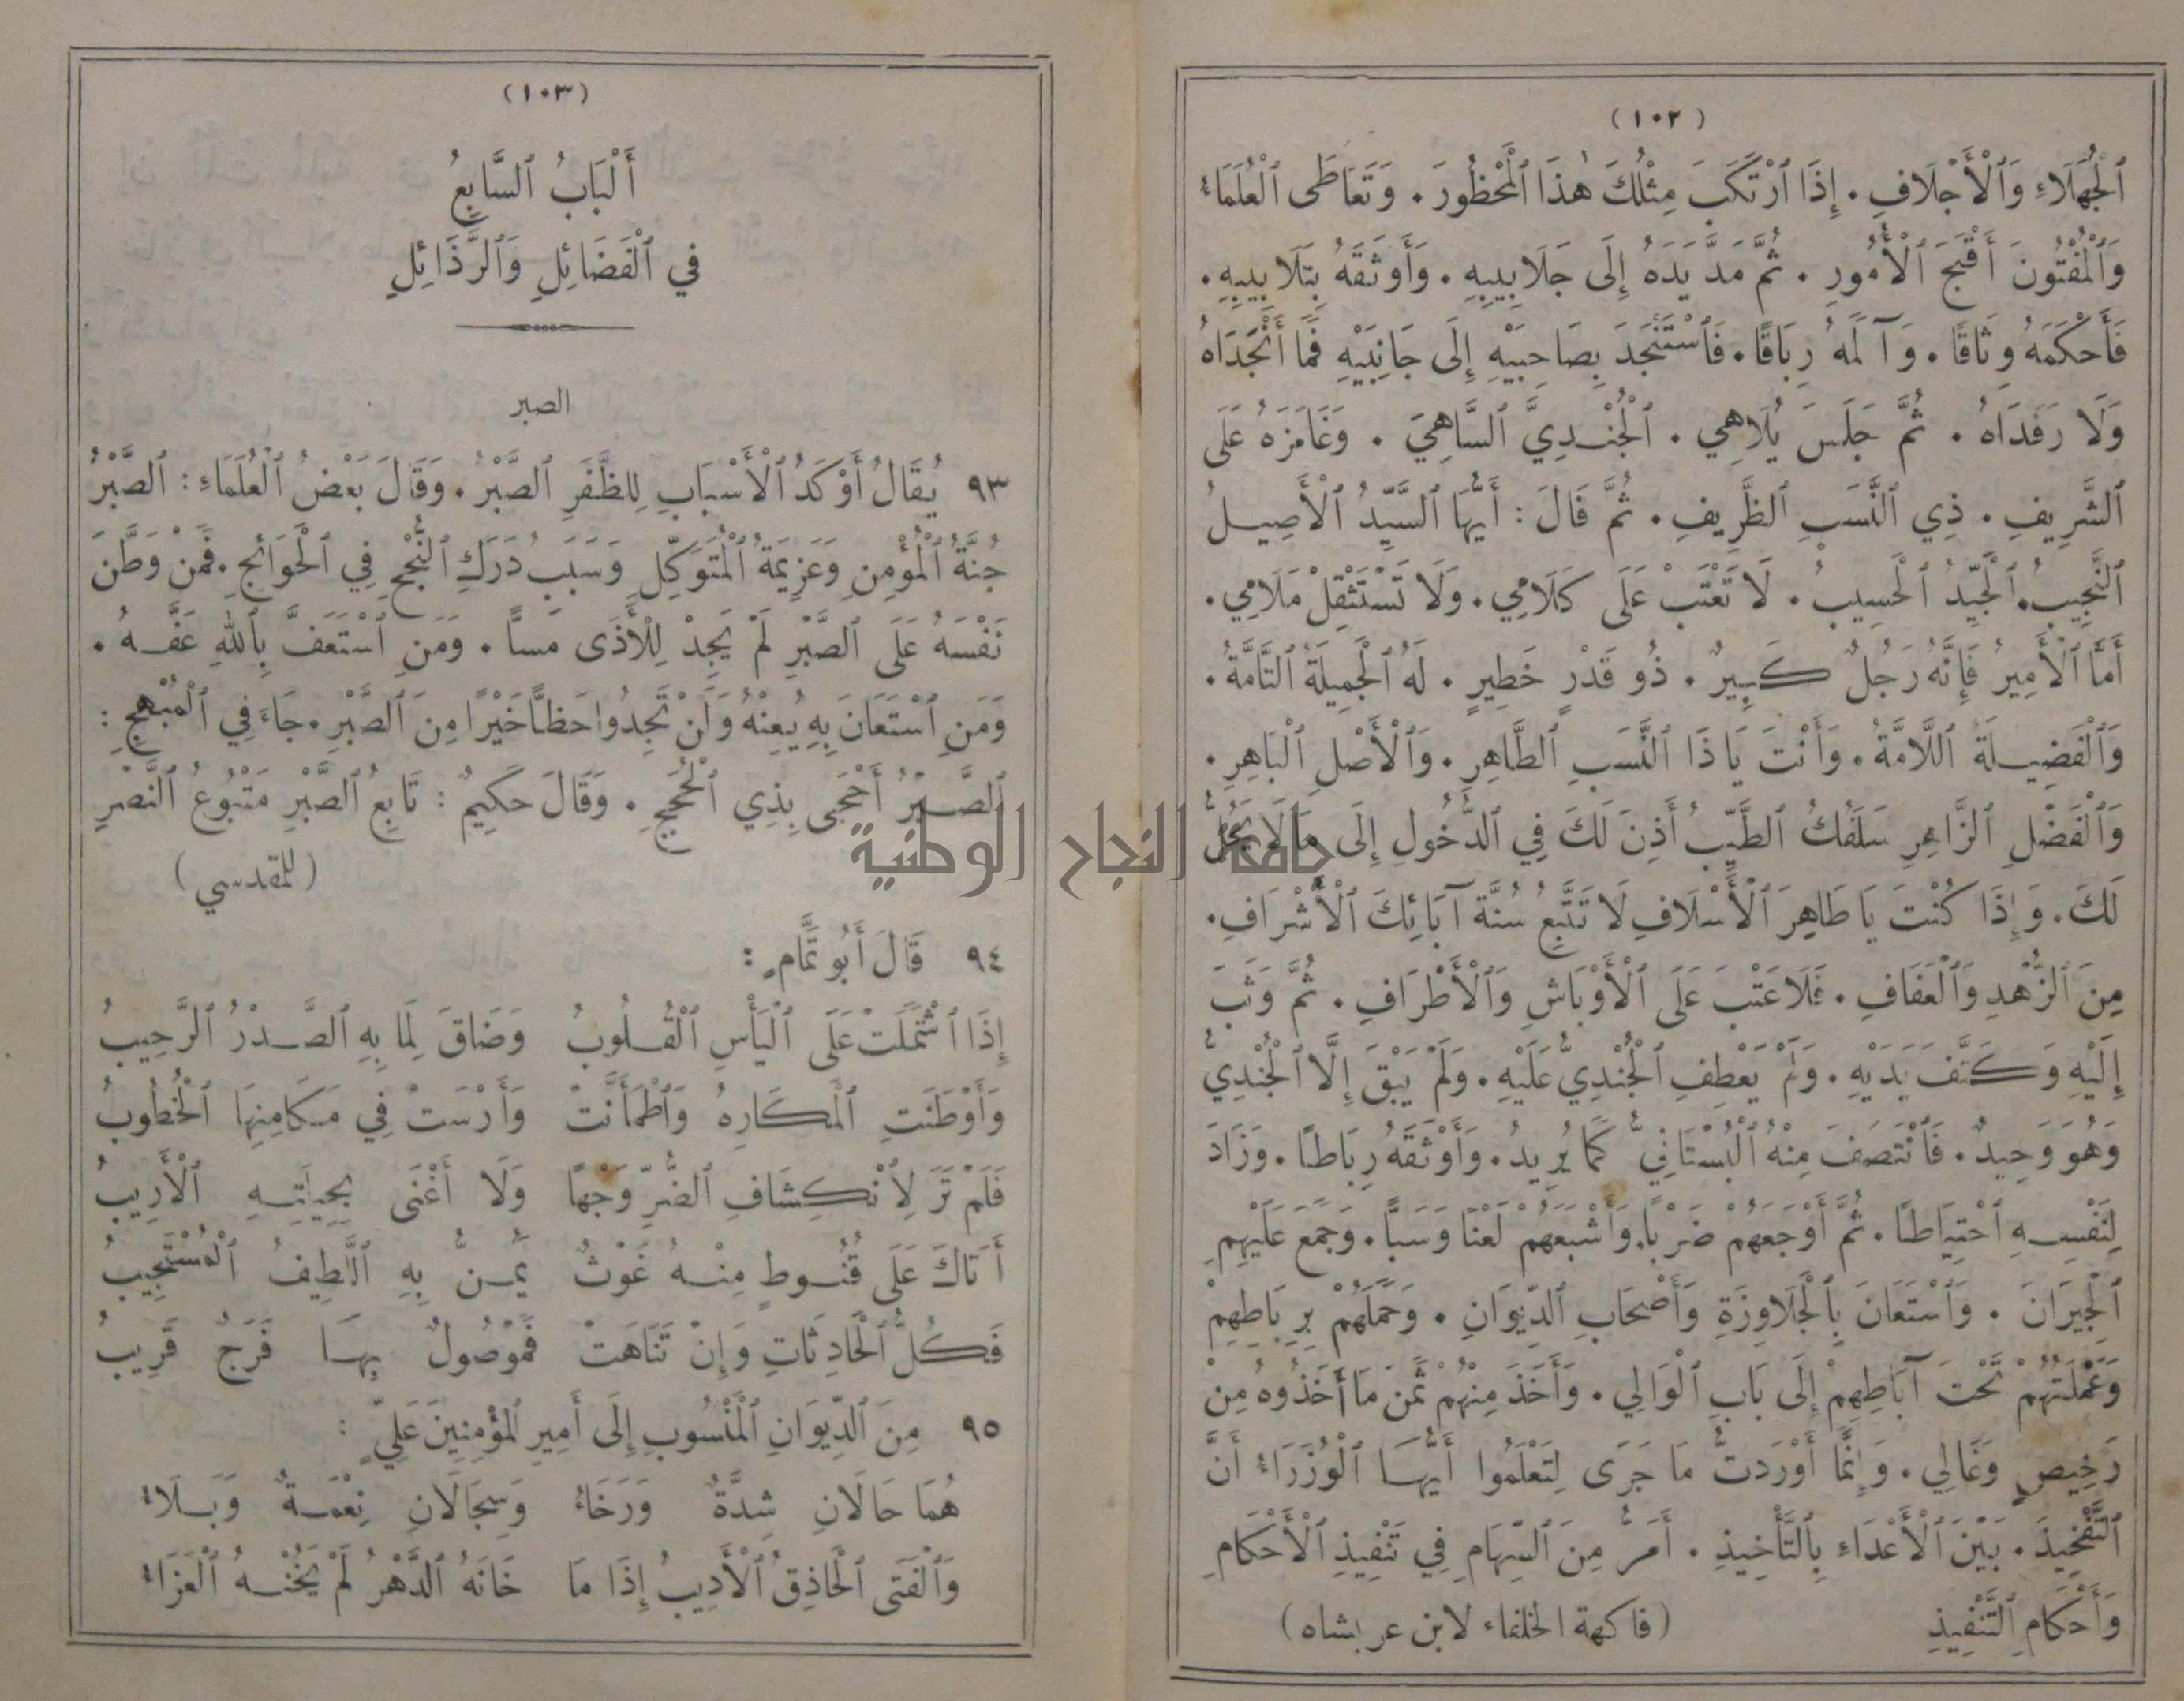 (١٠٢)
ٱلْجُهَلَاءِ وَٱلْأَجْلَافِ. إِذَا ٱرْتَكَبَ مِثْلُكَ هٰذَا ٱلْمَحْظُورَ. وَتَعَاطَى ٱلْعُلَمَاءُ
وَٱلْمُفْتُونَ أَقْبَحَ ٱلْأُمُورِ. ثُمَّ مَدَّ يَدَهُ إِلَى جَلَابِيبِهِ. وَأَوْثَقَهُ بِتَلَابِيبِهِ.
فَأَحْكَمَهُ وِثَاقًا. وَآلَمَهُ رِبَاقًا. فَٱسْتَنْجَدَ بِصَاحِبَيْهِ إِلَى جَانِبَيْهِ فَمَا أَنْجَدَاهُ
وَلَا رَفَدَاهُ. ثُمَّ جَلَسَ يُلَاهِي. ٱلْجُنْدِيَّ ٱلسَّاهِيَ. وَغَامَزَهُ عَلَى
ٱلشَّرِيفِ. ذِي ٱلنَّسَبِ ٱلظَّرِيفِ. ثُمَّ قَالَ: أَيُّهَا ٱلسَّيِّدُ ٱلْأَصِيلُ
ٱلنَّجِيبُ. ٱلْجَيِّدُ ٱلْحَسِيبُ. لَا تَعْتَبْ عَلَى كَلَامِي. وَلَا تَسْتَثْقِلْ مَلَامِي.
أَمَّا ٱلْأَمِيرُ فَإِنَّهُ رَجُلٌ كَبِيرٌ. ذُو قَدْرٍ خَطِيرٍ. لَهُ ٱلْجَمِيلَةُ ٱلتَّامَّةُ.
وَٱلْفَضِيلَةُ ٱللَّامَّةُ. وَأَنْتَ يَا ذَا ٱلنَّسَبِ ٱلطَّاهِرِ. وَٱلْأَصْلِ ٱلْبَاهِرِ.
وَٱلْفَضْلِ ٱلزَّاهِرِ سَلَفُكَ ٱلطَّيِّبُ أَذِنَ لَكَ فِي ٱلدُّخُولِ إِلَى مَا لَا يَحِلُّ
لَكَ. وَإِذَا كُنْتَ يَا طَاهِرَ ٱلْأَسْلَافِ لَا تَتَّبِعُ سُنَّةَ آبَائِكَ ٱلْأَشْرَافِ.
مِنَ ٱلزُّهْدِ وَٱلْعَفَافِ. فَلَا عَتْبَ عَلَى ٱلْأَوْبَاشِ وَٱلْأَطْرَافِ. ثُمَّ وَثَبَ
إِلَيْهِ وَكَتَّفَ يَدَيْهِ. وَلَمْ يَعْطِفِ ٱلْجُنْدِيُّ عَلَيْهِ. وَلَمْ يَبْقَ إِلَّا ٱلْجُنْدِيُّ
وَهُوَ وَحِيدٌ. فَٱنْتَصَفَ مِنْهُ ٱلْبُسْتَانِيُّ كَمَا يُرِيدُ. وَأَوْثَقَهُ رِبَاطًا. وَزَادَ
لِنَفْسِهِ ٱحْتِيَاطًا. ثُمَّ أَوْجَعَهُمْ ضَرْبًا. وَأَشْبَعَهُمْ لَعْنًا وَسَبًّا. وَجَمَعَ عَلَيْهِمِ
ٱلْجِيرَانَ. وَٱسْتَعَانَ بِٱلْجَلَاوِزَةِ وَأَصْحَابِ ٱلدِّيوَانِ. وَحَمَلَهُمْ بِرِبَاطِهِمْ
وَعَمْلَتُهُمْ تَحْتَ آبَاطِهِمْ إِلَى بَابِ ٱلْوَالِي. وَأَخَذَ مِنْهُمْ ثَمَنَ مَا أَخَذُوهُ مِنْ
رَخِيصٍ وَغَالِي. وَإِنَّمَا أَوْرَدتُّ مَا جَرَى لِتَعْلَمُوا أَيُّهَا ٱلْوُزَرَاءُ أَنَّ
ٱلتَّفْخِيذَ. بَيْنَ ٱلْأَعْدَاءِ بِٱلتَّأْخِيذِ. أَمَرُّ مِنَ ٱلسِّهَامِ فِي تَنْفِيذِ ٱلْأَحْكَامِ
وَأَحْكَامِ ٱلتَّنْفِيذِ (فاكهة الخلفاء لابن عربشاه)
(١٠٣)
أَلْبَابُ ٱلسَّابِعُ
فِي ٱلْفَضَائِلِ وَٱلرَّذَائِلِ
الصبر
٩٣ يُقَالُ أَوْكَدُ ٱلْأَسْبَابِ لِلظَّفَرِ ٱلصَّبْرُ. وَقَالَ بَعْضُ ٱلْعُلَمَاءِ: ٱلصَّبْرُ
جُنَّةُ ٱلْمُؤْمِنِ وَعَزِيمَةُ ٱلْمُتَوَكِّلِ وَسَبَبُ دَرَكِ ٱلنُّجْحِ فِي ٱلْحَوَائِجِ. فَمَنْ وَطَّنَ
نَفْسَهُ عَلَى ٱلصَّبْرِ لَمْ يَجِدْ لِلْأَذَى مَسًّا. وَمَنِ ٱسْتَعَفَّ بِٱللهِ عَفَّهُ.
وَمَنِ ٱسْتَعَانَ بِهِ يُعِنْهُ وَلَنْ تَجِدُوا حَظًّا خَيْرًا مِنَ ٱلصَّبْرِ. جَاءَ فِي ٱلْمُبْهِجِ:
ٱلصَّبْرُ أَحْجَى بِذِي ٱلْحُجَجِ. وَقَالَ حَكِيمٌ: تَابِعُ ٱلصَّبْرِ مَتْبُوعُ ٱلنَّصْرِ
(للمقدسي)
جامعة النجاح الوطنية
٩٤ قَالَ أَبُو تَمَّامٍ:
إِذَا ٱشْتَمَلَتْ عَلَى ٱلْيَأْسِ ٱلْقُلُوبُ وَضَاقَ لِمَا بِهِ ٱلصَّدْرُ ٱلرَّحِيبُ
وَأَوْطَنَتِ ٱلْمَكَارِهُ وَٱطْمَأَنَّتْ وَأَرْسَتْ فِي مَكَامِنِهَا ٱلْخُطُوبُ
فَلَمْ تَرَ لِٱنْكِشَافِ ٱلضُّرِّ وَجْهًا وَلَا أَغْنَى بِحِيلَتِهِ ٱلْأَرِيبُ
أَتَاكَ عَلَى قُنُوطٍ مِنْهُ غَوْثٌ يَمُنُّ بِهِ ٱللَّطِيفُ ٱلْمُسْتَجِيبُ
فَكُلُّ ٱلْحَادِثَاتِ وَإِنْ تَنَاهَتْ فَمَوْصُولٌ بِهَا فَرَجٌ قَرِيبُ
٩٥ مِنَ ٱلدِّيوَانِ ٱلْمَنْسُوبِ إِلَى أَمِيرِ ٱلْمُؤْمِنِينَ عَلِيٍّ:
هُمَا حَالَانِ شِدَّةٌ وَرَخَاءُ وَسِجَالَانِ نِعْمَةٌ وَبَلَاءُ
وَٱلْفَتَى ٱلْحَاذِقُ ٱلْأَدِيبُ إِذَا مَا خَانَهُ ٱلدَّهْرُ لَمْ يَخُنْهُ ٱلْعَزَاءُ